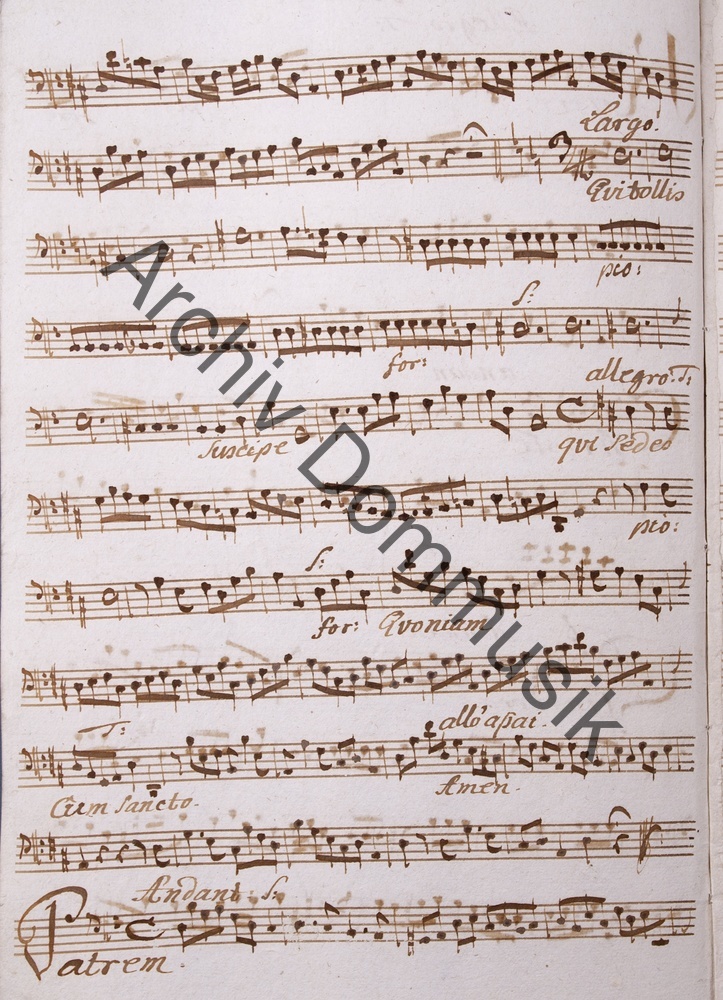 Largo.
Qui tollis
pio:
S:
for:
allegro. T:
suscipe
qui sedes
pio:
S:
for: Quoniam
T:
allo' assai
Cum Sancto.
Amen.
Andant: S:
Patrem.
Archiv Dommusik